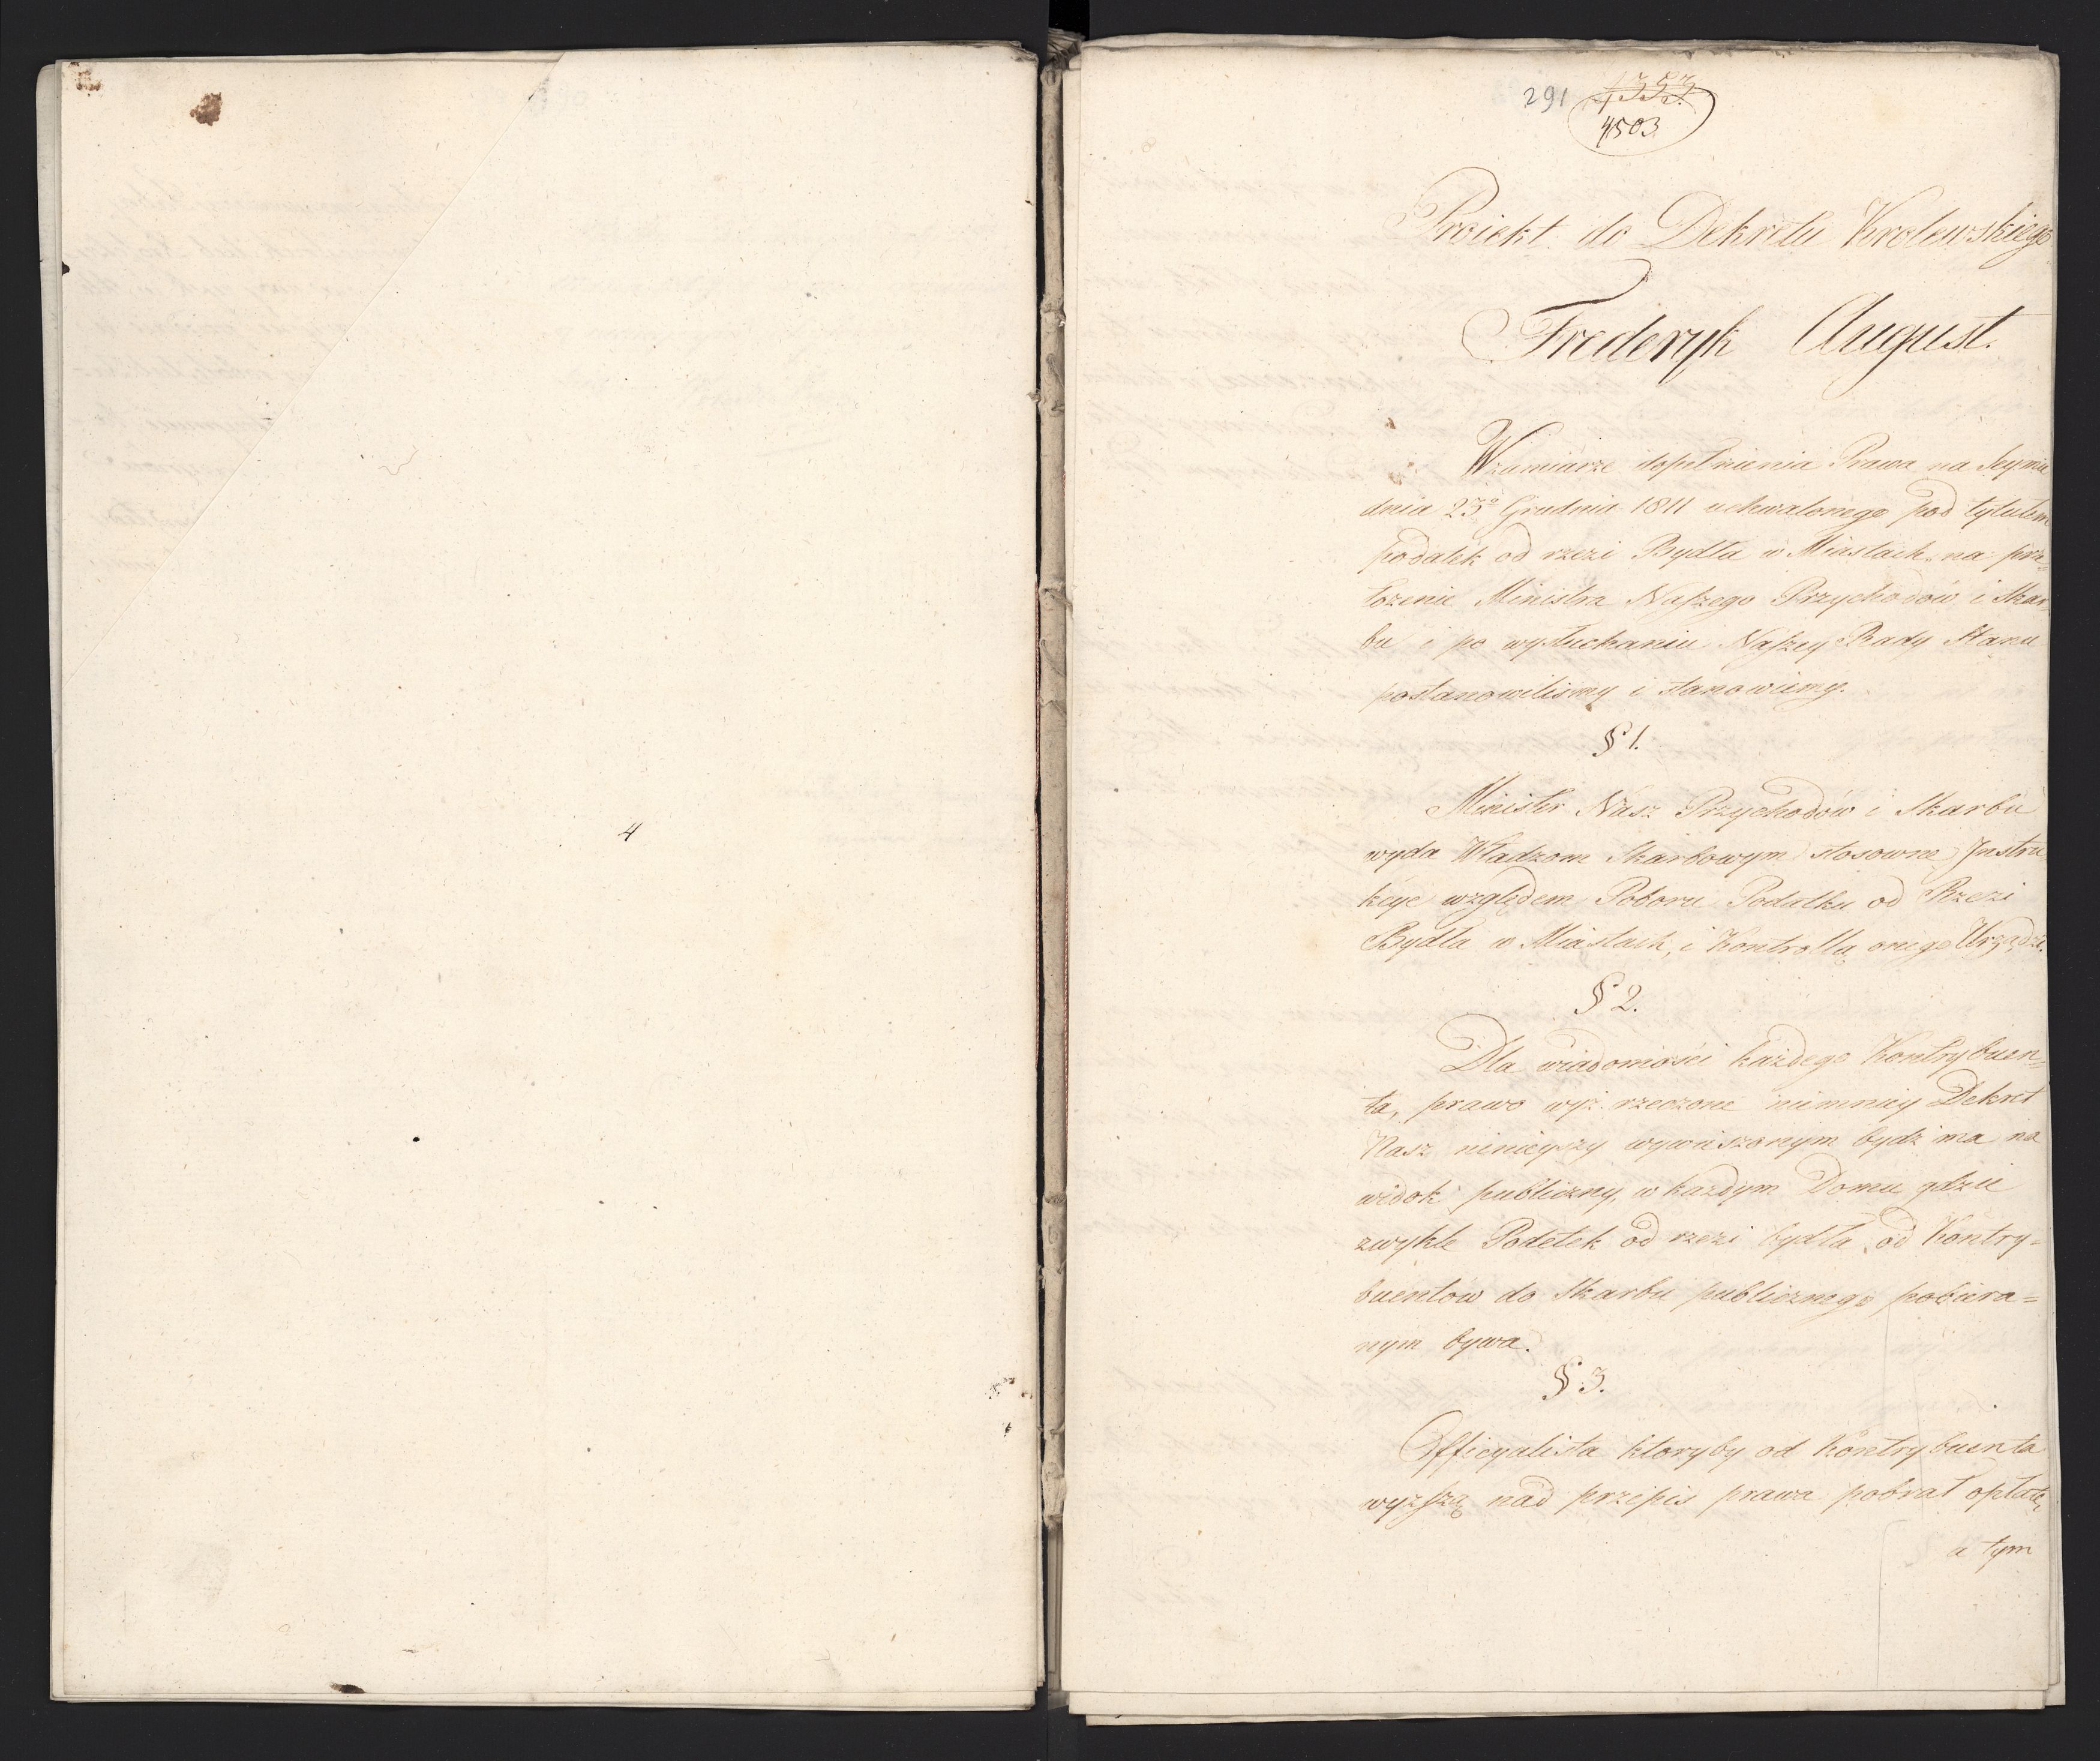 4
291
4503
Proiekt do Dekretu Krolewskiego
Frederyk August.
Wzamiarze dopełnienia Prawa na Seymie
dnia 23º Grudnia 1811 uchwalonego pod tytułem
podatek od rzezi Bydła w Miastach na prze=
łożenie Ministra Naszego Przychodów i Skar=
bu i po wysłuchaniu Naszey Rady Stanu
postanowiliśmy i stanowiemy.
§ 1.
Minister Nasz Przychodów i Skarbu
wyda Władzom Skarbowym stosowne Instru
kcye względem Poboru Podatku od Rzezi
Bydła w Miastach, i Kontrollą onego Urządzi.
§ 2.
Dla wiadomości każdego Kontrybuen=
ta, prawo wyż rzeczone niemniey Dekret
Nasz ninieyszy wywieszonym bydź ma na
widok publiczny, w każdym Domu gdzie
zwykle Podetek od rzezi bydła od Kontry=
buentow do Skarbu publicznego pobiera=
nym bywa.
§ 3.
Officyalista ktoryby od Kontrybuenta
wyższą nad przepis prawa pobrał opłatę,
a tym